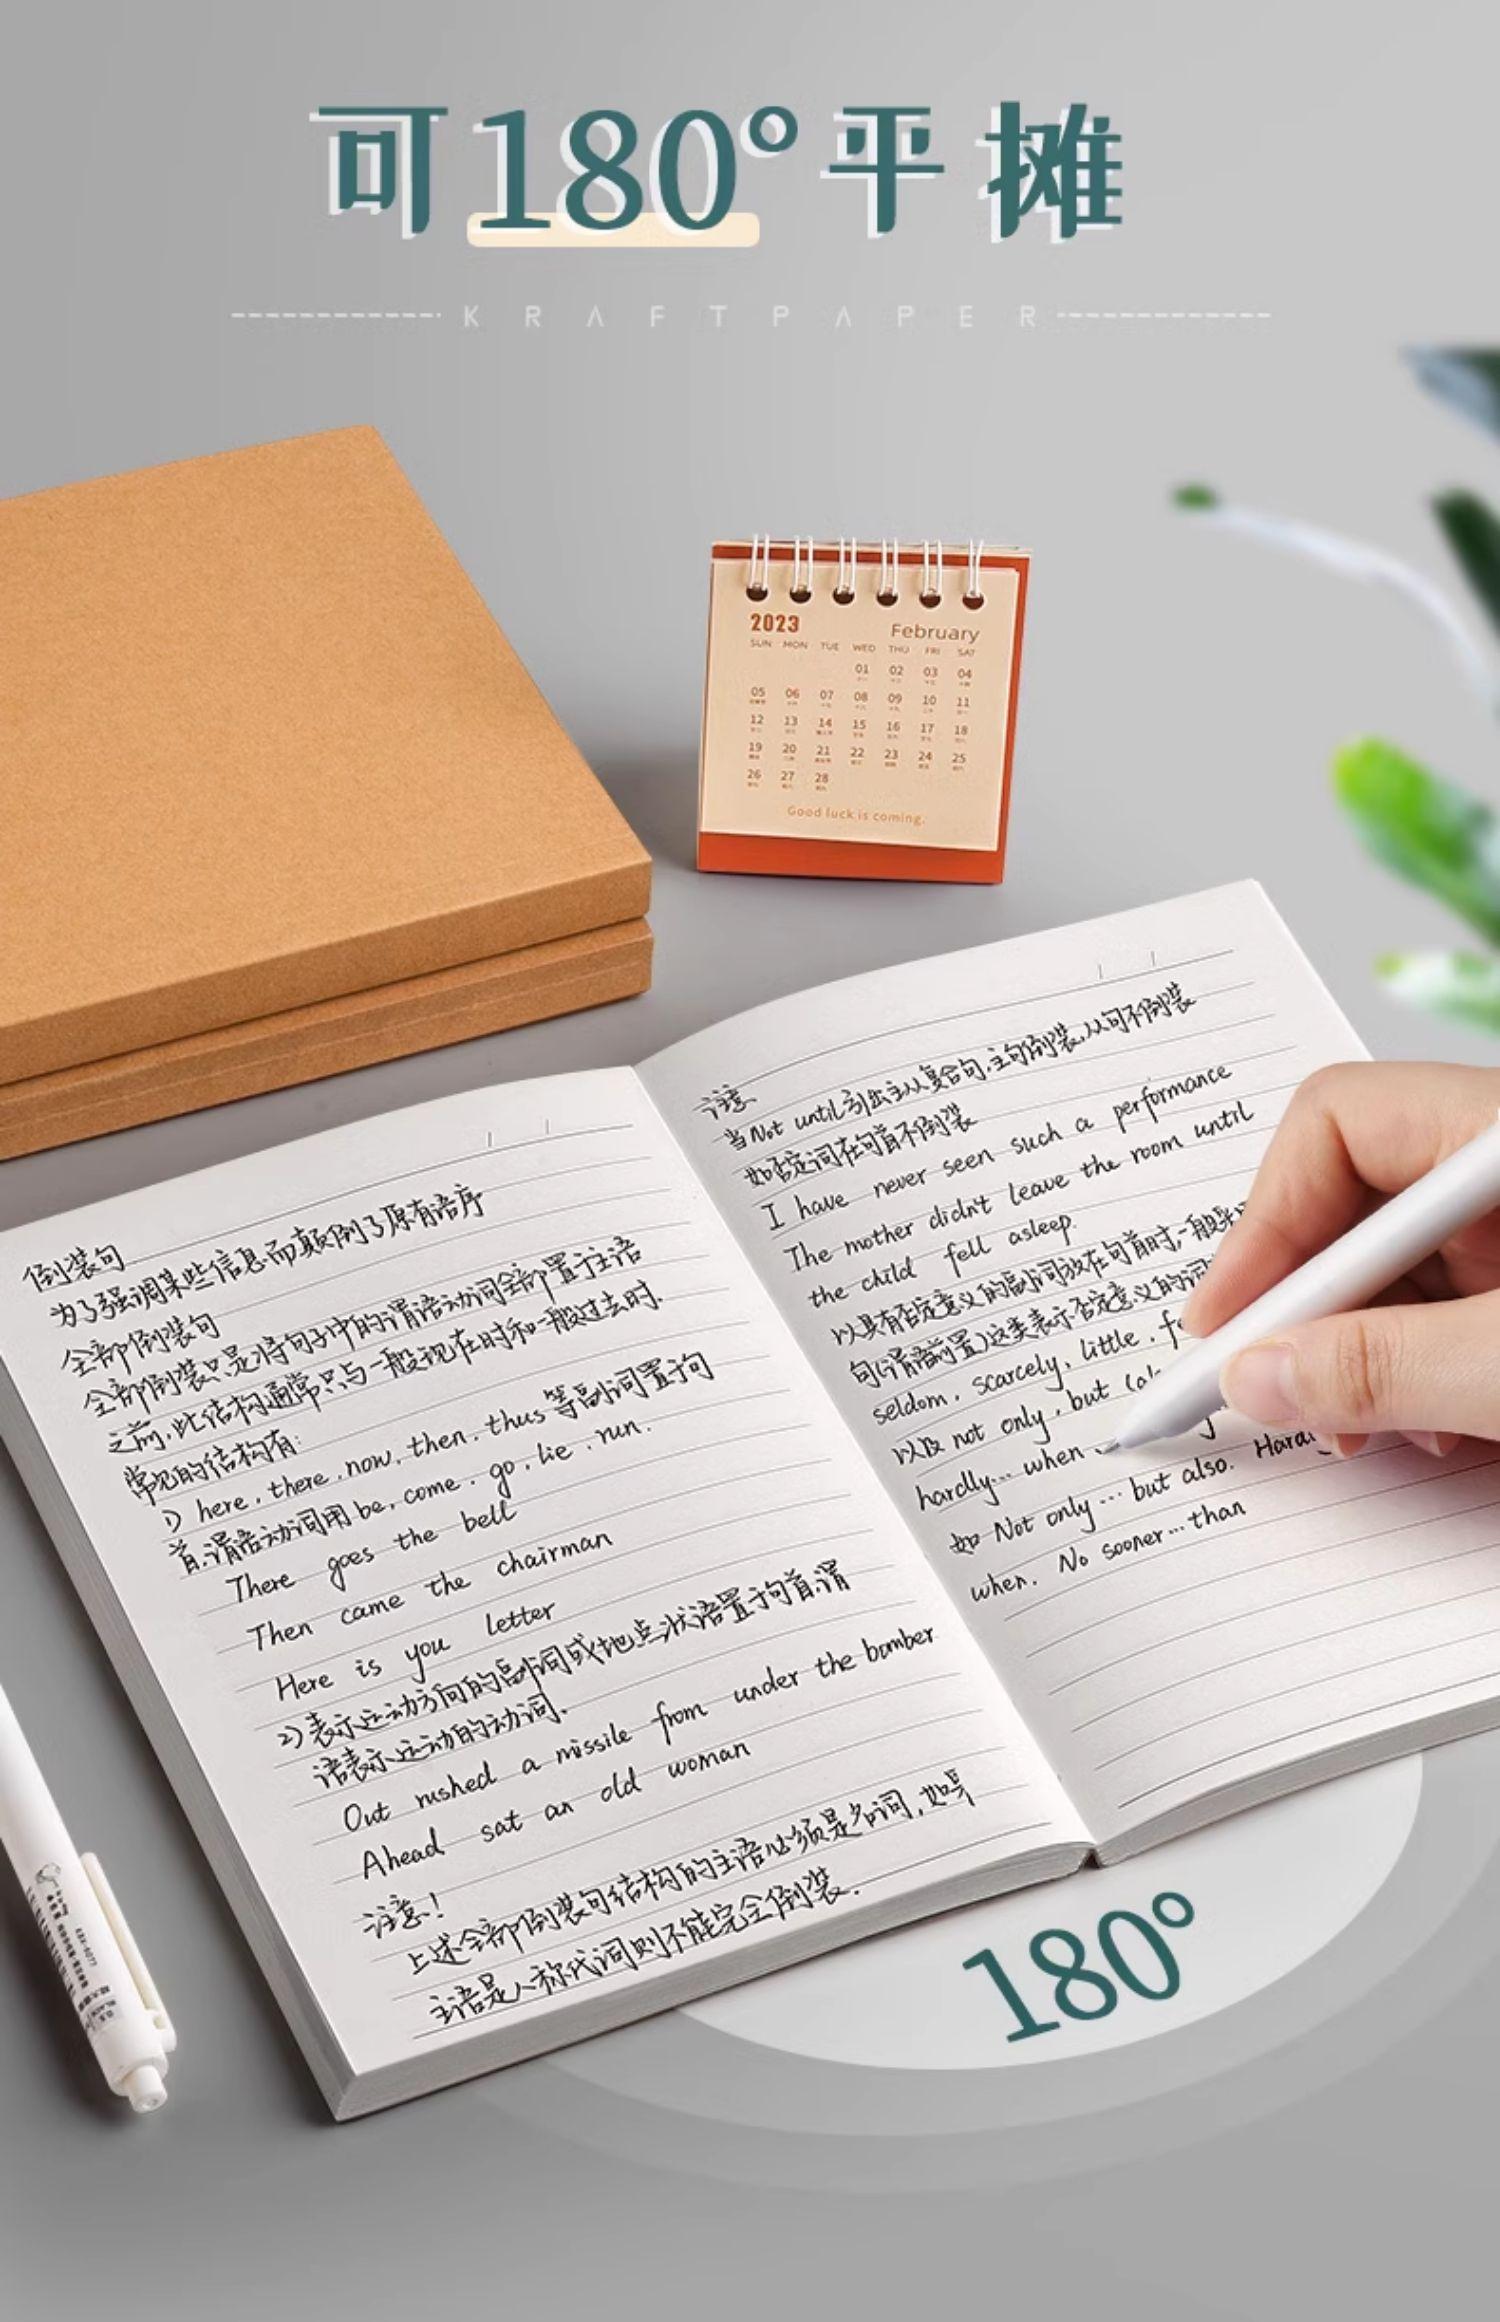 可180°平摊
KRAFTPAPER
2023 February
SUN MON TUE WED THU FRI SAT
01 02 03 04
05 06 07 08 09 10 11
12 13 14 15 16 17 18
19 20 21 22 23 24 25
26 27 28
Good luck is coming.
倒装句
为了强调某些信息而颠倒了原有语序
全部倒装句
全部倒装只是将句子中的谓语动词全部置于主语
之前,此结构通常只与一般现在时和一般过去时.
常见的结构有:
1) here, there, now, then, thus 等副词置于句
首,谓语动词用 be, come, go, lie, run.
There goes the bell
Then came the chairman
Here is you letter
2) 表示运动方向的副词或地点状语置于句首,谓
语表示运动的动词.
Out rushed a missile from under the bomber
Ahead sat an old woman
注意!
上述全部倒装句结构的主语必须是名词,如果
主语是人称代词则不能完全倒装.
注意
当Not until引出主从复合句,主句倒装,从句不倒装
如否定词在句首不倒装
I have never seen such a performance
The mother didn't leave the room until
the child fell asleep.
以具有否定意义的副词放在句首时,一般
句(谓语前置)这类表示否定意义的词
seldom, scarcely, little,
以及 not only, but
hardly... when
如 Not only... but also.
when. No sooner... than
180°